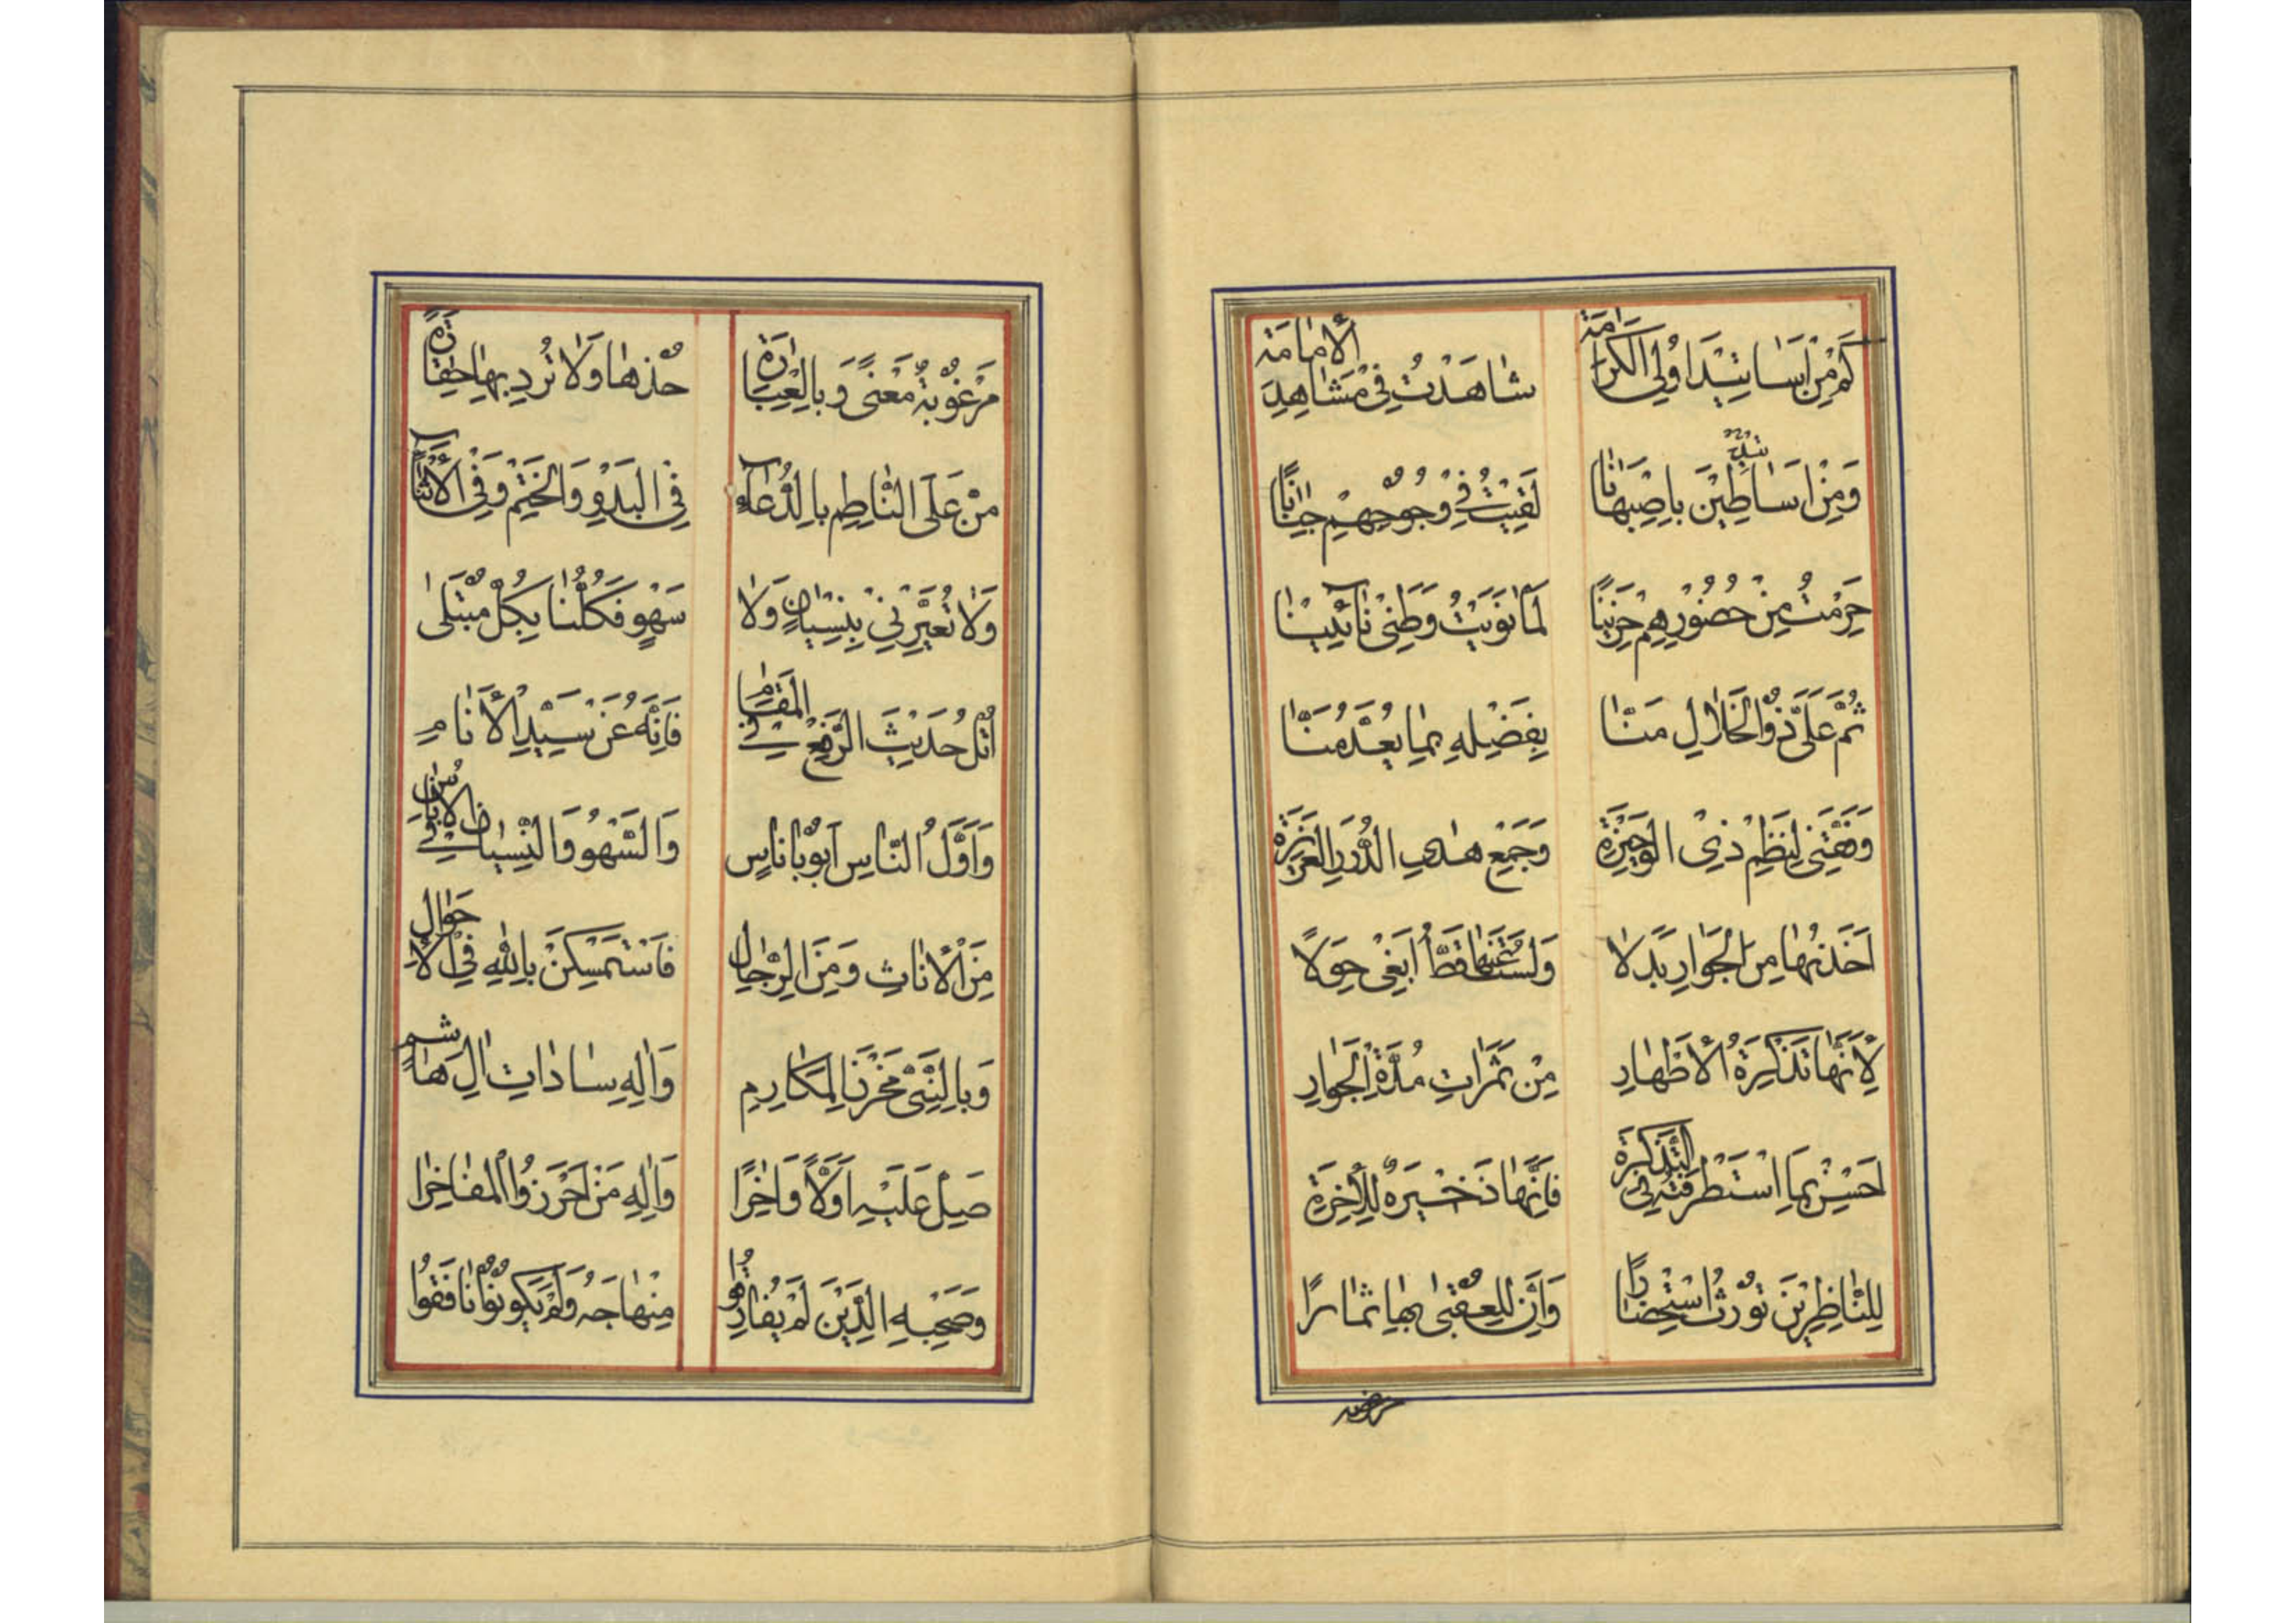 كَمْ مِنْ اَسٰاتِيْدَ اُولِي الْكَرٰامَةِ شٰاهَدْتُ فِيْ مَشٰاهِدِ الْاِمٰامَةِ
وَمِنْ اَسٰاطِيْنَ بِاِصْبِهٰانٰا لَقِيْتُ فِيْ وُجُوْهِهِمْ جِنٰانًا
حَرِمْتُ مِنْ حُضُوْرِهِمْ حَزِيْنًا لَمّٰا نَوَيْتُ وَطَنِيْ نٰائِيْنٰا
ثُمَّ عَلَيَّ ذُوالْجَلٰالِ مَنّٰا بِفَضْلِهِ بِمٰا يُعَدُّ مَنّٰا
وَفَّقَنِيْ لِنَظْمِ ذِي الْوَجِيْزَةِ وَجَمْعِ هٰذِي الدُّرَرِ الْعَزِيْزَةِ
اَخَذْتُهٰا مِنَ الْجَوٰارِ بَدَلًا وَلَسْتُ عَنْهٰا قَطُّ اَبْغِيْ حِوَلًا
لِاَنَّهٰا تَذْكِرَةُ الْاَطْهٰارِ مِنْ ثَمَرٰاتِ مُدَّةِ الْجَوٰارِ
اَحْسِنْ بِمَا اسْتَطْرَفْتُهُ لِيْ التَّذْكِرَةْ فَاِنَّهٰا ذَخِيْرَةٌ لِلْاٰخِرَةِ
لِلنّٰاظِرِيْنَ تُوْرِثُ اسْتِحْضٰارًا وَاَنَّ لِلْعُقْبىٰ بِهٰا ثِمٰارًا
مَرْغُوْبَةٌ مَعْنًى وَبِالْعِبٰارَةِ خُذْهٰا وَلٰا تُرِدْ بِهٰا حَقٰارَةً
مُنْ عَلَى النّٰاظِمِ بِالدُّعٰآءِ فِي الْبَدْوِ وَالْخَتْمِ وَفِي الْاَثْنٰآءِ
وَلٰا تُعَيِّرْنِيْ بِنِسْيٰانٍ وَلٰا سَهْوٍ فَكُلُّنٰا بِكُلٍّ مُبْتَلىٰ
اُتْلُ حَدِيْثَ الرَّفْعِ فِي الْمَقٰامِ فَاِنَّهُ عَنْ سَيِّدِ الْاَنٰامِ
وَاَوَّلُ النّٰاسِ اَبُوْنٰا نٰاسٍ وَالسَّهْوُ وَالنِّسْيٰانُ فِي الْاُنٰاسِ
مِنَ الْاِنٰاثِ وَمِنَ الرِّجٰالِ فَاسْتَمْسِكَنْ بِاللّٰهِ فِي الْاَحْوٰالِ
وَبِالنَّبِيِّ مَخْزَنِ الْمَكٰارِمِ وَاٰلِهِ سٰادٰاتِ اٰلِ هٰاشِمٍ
صَلِّ عَلَيْهِ اَوَّلًا وَاٰخِرًا وَاٰلِهِ مَنْ اَحْرَزُوا الْمَفٰاخِرٰا
وَصَحْبِهِ الَّذِيْنَ لَمْ يُفٰارِقُوا مِنْهٰاجَهُ وَلَمْ يَكُوْنُوا نٰافَقُوا